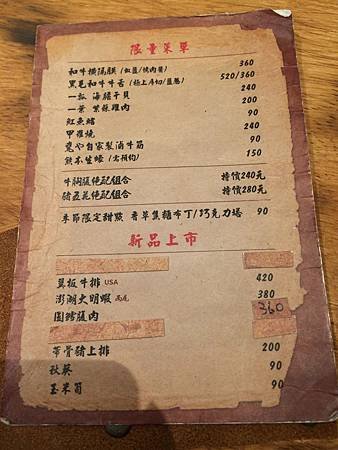 限量菜單
和牛橫隔膜(玫鹽/燒肉醬) 360
黑毛和牛牛舌(極上厚切/鹽蔥) 520/360
一瓠 海膽干貝 240
一葉 紫蘇雞肉 200
魟魚鰭 90
甲羅燒 240
瓮や自家製滷牛筋 90
熊本生蠔(需預約) 150
牛胸腹絕配組合 特價240元
豬五花絕配組合 特價280元
季節限定甜點 香草焦糖布丁/巧克力塔 90
新品上市
翼板牛排 USA 420
澎湖大明蝦 兩尾 380
圓鱈腹肉 360
帶骨豬上排 200
秋葵 90
玉米筍 90